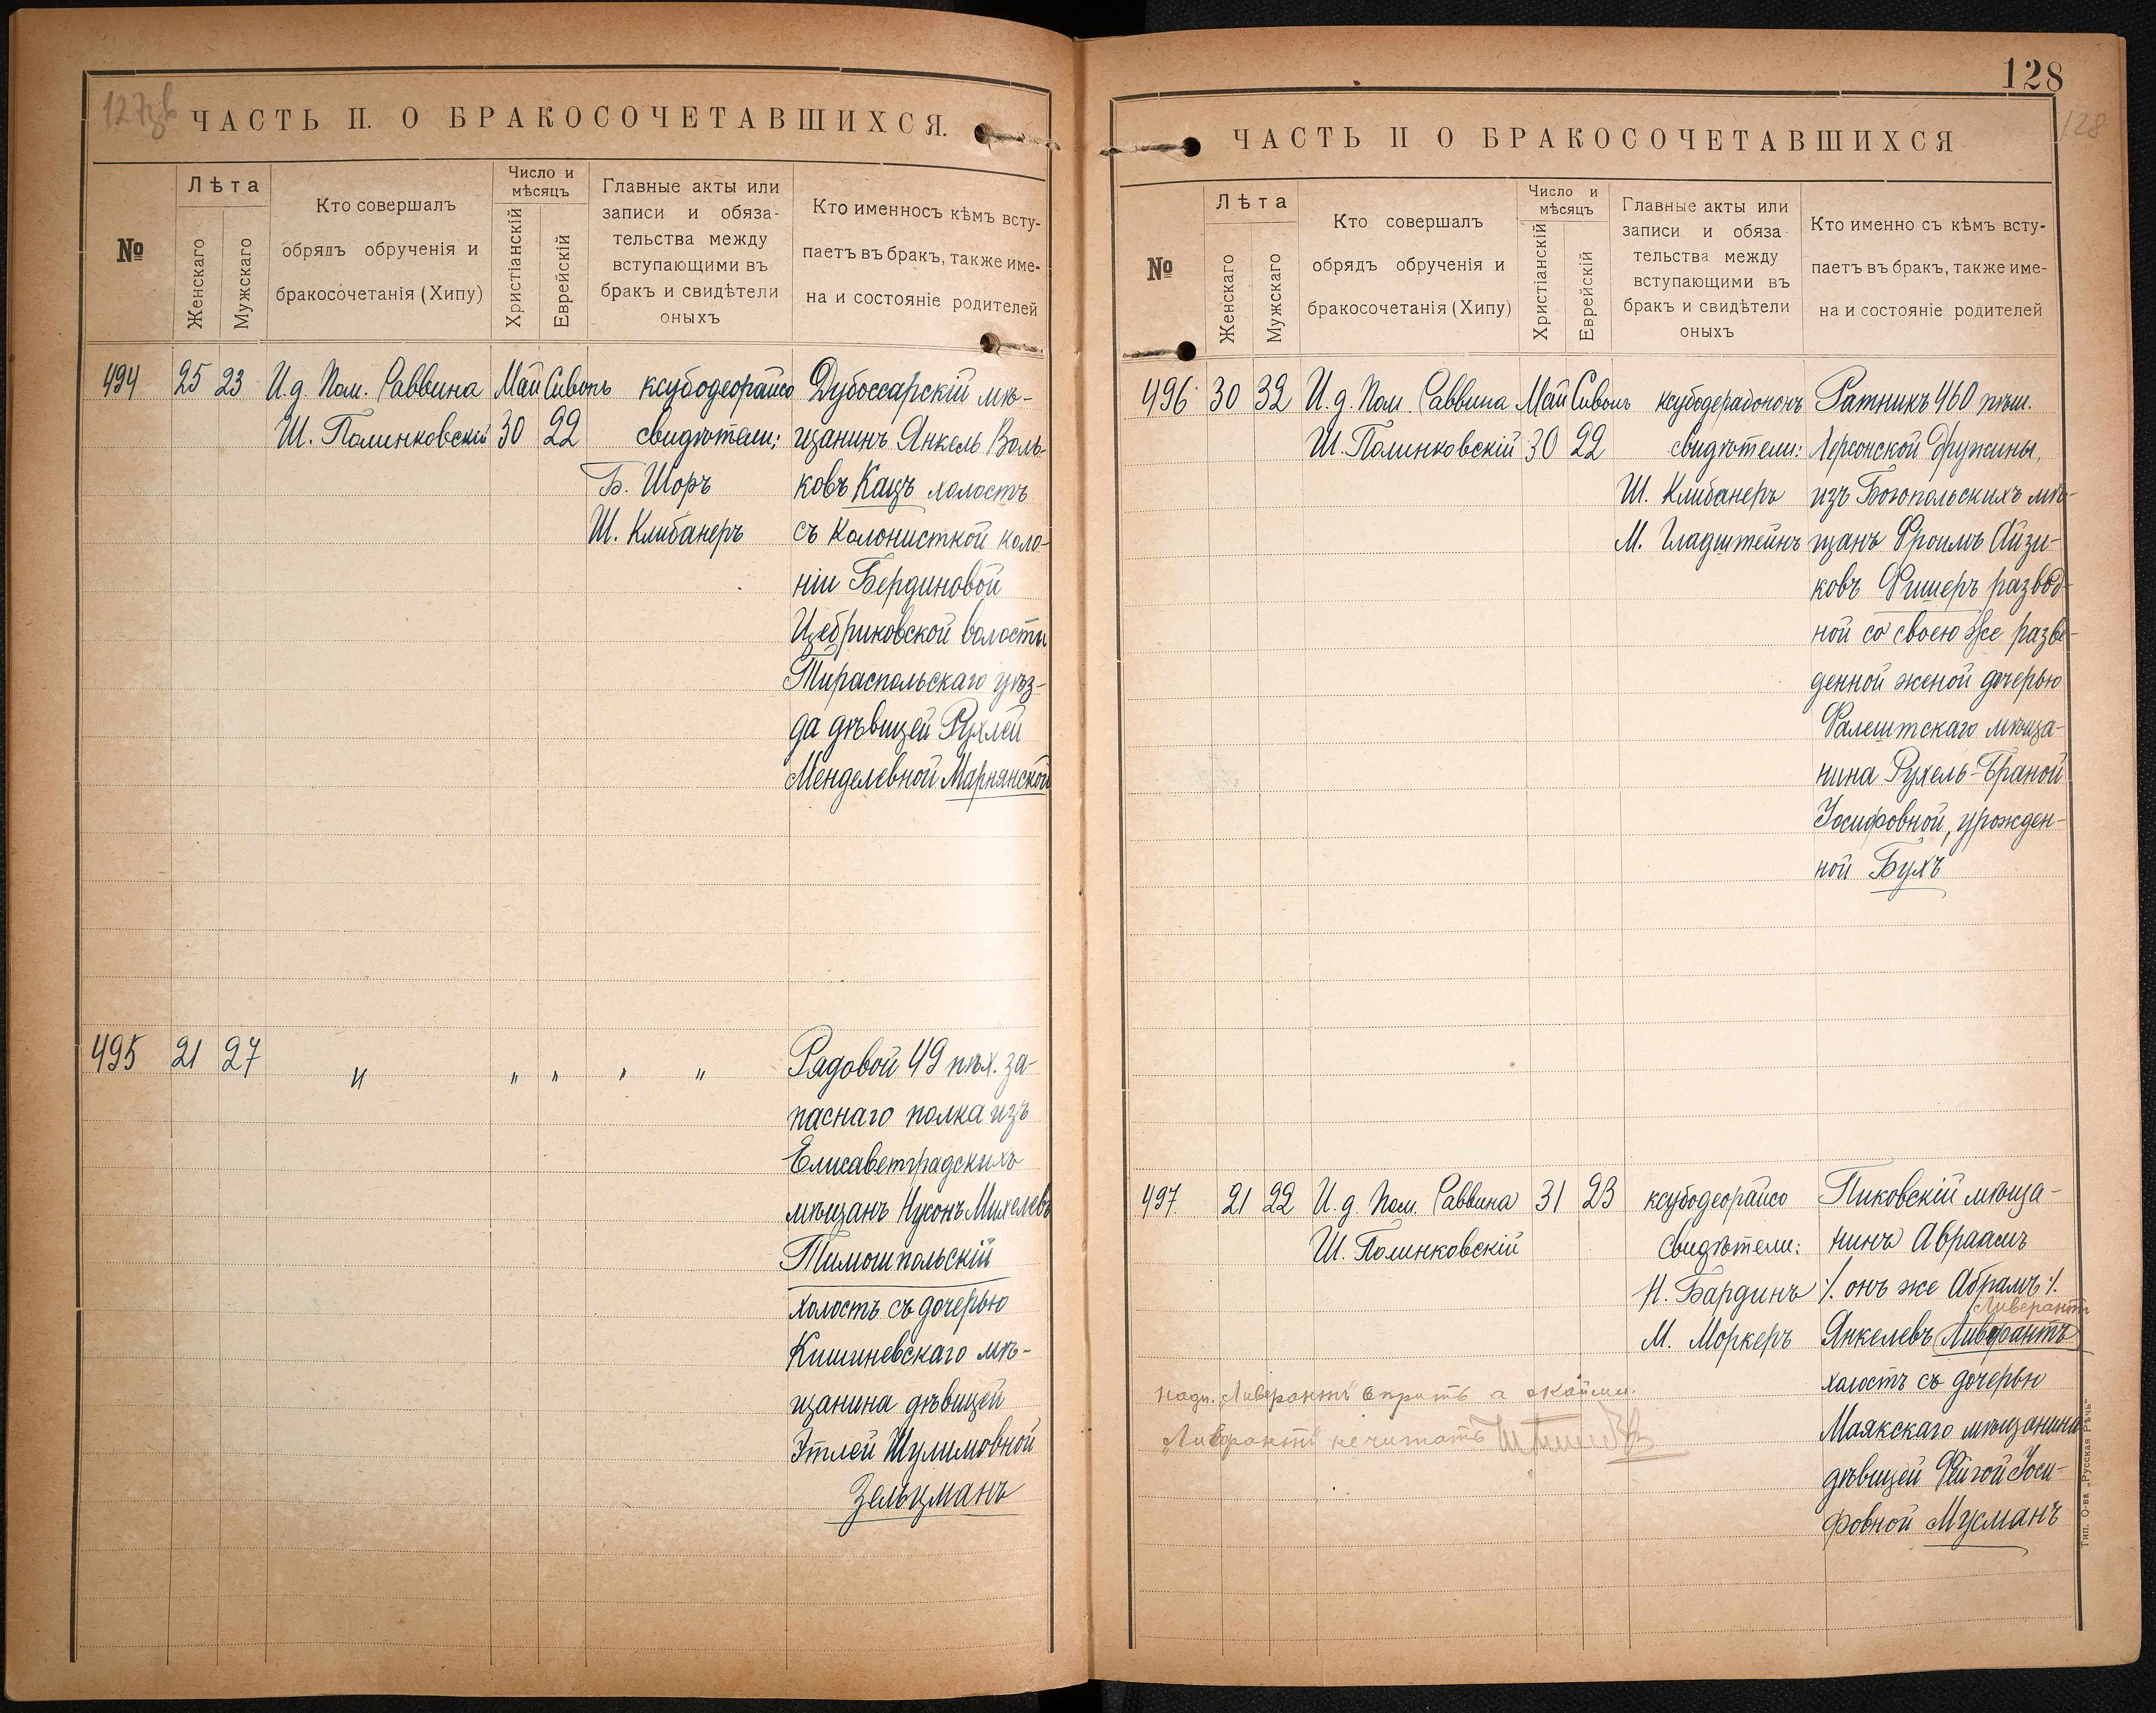 127об
ЧАСТЬ II. О БРАКОСОЧЕТАВШИХСЯ.
№
Лѣта
Женскаго
Мужскаго
Кто совершалъ
обрядъ обрученія и
бракосочетанія (Хипу)
Число и
мѣсяцъ
Христіанскій
Еврейскій
Главные акты или
записи и обяза-
тельства между
вступающими въ
бракъ и свидѣтели
оныхъ
Кто именносъ кѣмъ всту-
паетъ въ бракъ, также име-
на и состояніе родителей
494 25 23 И.д. Пом. Раввина Май Сивонъ ксубодеорайсо Дубоссарскій мѣ-
Ш. Полинковскій 30 22 свидѣтели: щанинъ Янкель Воль-
Б. Шоръ ковъ Кацъ холостъ
Ш. Клибанеръ съ колонисткой коло-
ніи Бердиновой
Цебриковской волости
Тираспольскаго уѣз-
да дѣвицей Рухлей
Менделевной Марьянской
495 21 27 " " " " " Рядовой 49 пѣх. за-
паснаго полка изъ
Елисаветградскихъ
мѣщанъ Нусонъ Михелевъ
Тимошпольскій
холостъ съ дочерью
Кишиневскаго мѣ-
щанина дѣвицей
Этлей Шулимовной
Зельцманъ
128
128
ЧАСТЬ II О БРАКОСОЧЕТАВШИХСЯ
№
Лѣта
Женскаго
Мужскаго
Кто совершалъ
обрядъ обрученія и
бракосочетанія (Хипу)
Число и
мѣсяцъ
Христіанскій
Еврейскій
Главные акты или
записи и обяза
тельства между
вступающими въ
бракъ и свидѣтели
оныхъ
Кто именно съ кѣмъ всту-
паетъ въ бракъ, также име-
на и состояніе родителей
496 30 32 И.д. Пом. Раввина Май Сивонъ ксубодерабононъ Ратникъ 460 пѣш.
Ш. Полинковскій 30 22 свидѣтели: Херсонской дружины,
Ш. Клибанеръ изъ Богопольскихъ мѣ-
М. Гладштейнъ щанъ Фроимъ Айзи-
ковъ Фишеръ развод-
ной со своею же разве-
денной женой дочерью
Фалештскаго мѣща-
нина Рухель-Браной
Іосифовной, урожден-
ной Бухъ
497 21 22 И.д. Пом. Раввина 31 23 ксубодеорайсо Пиковскій мѣща-
Ш. Полинковскій Свидѣтели: нинъ Авраамъ
Н. Бардинъ ⁒ онъ же Абрамъ ⁒
Ливерантъ
М. Моркеръ Янкелевъ Ливфрантъ
холостъ съ дочерью
Маякскаго мѣщанина
дѣвицей Фейгой Іоси-
фовной Мусманъ
надп. "Ливерантъ" вѣрить а
не читать
Тип. О-ва „Русская Рѣчь“